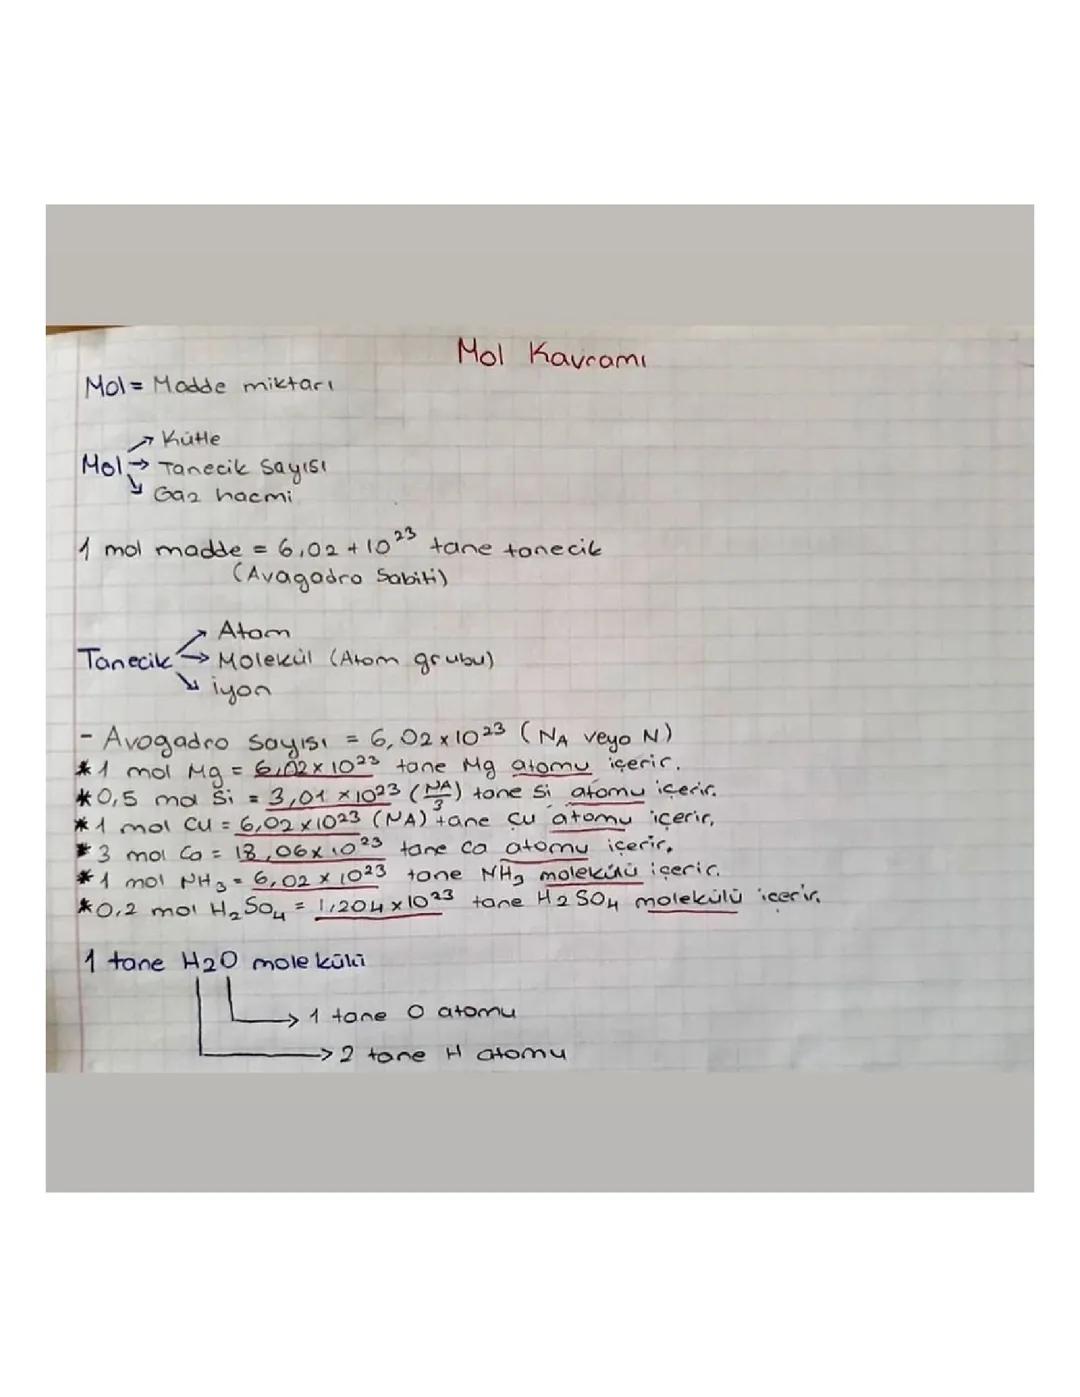 Mol Kavramı
Mol = Madde miktarı
Mol → Kütle
→ Tanecik Sayısı
→ Gaz hacmi
1 mol madde = 6,02 + 10²³ tane tanecik
(Avagadro Sabiti)
Tanecik → Atom
→ Molekül (Atom grubu)
→ iyon
- Avogadro sayısı = 6,02 x 10²³ (NA veya N)
* 1 mol Mg = 6,02 x 10²³ tane Mg atomu içerir.
* 0,5 mol Si = 3,01 x 10²³ (NA/3) tane Si atomu içerir.
* 1 mol Cu = 6,02 x 10²³ (NA) tane Çu atomu içerir,
* 3 mol Ca = 18,06 x 10²³ tane Ca atomu içerir.
* 1 mol NH₃ = 6,02 x 10²³ tane NH₃ molekülü içerir.
* 0,2 mol H₂SO₄ = 1,204 x 10²³ tane H₂SO₄ molekülü içerir.
1 tane H2O molekülü
→ 1 tane O atomu
→ 2 tane H atomu